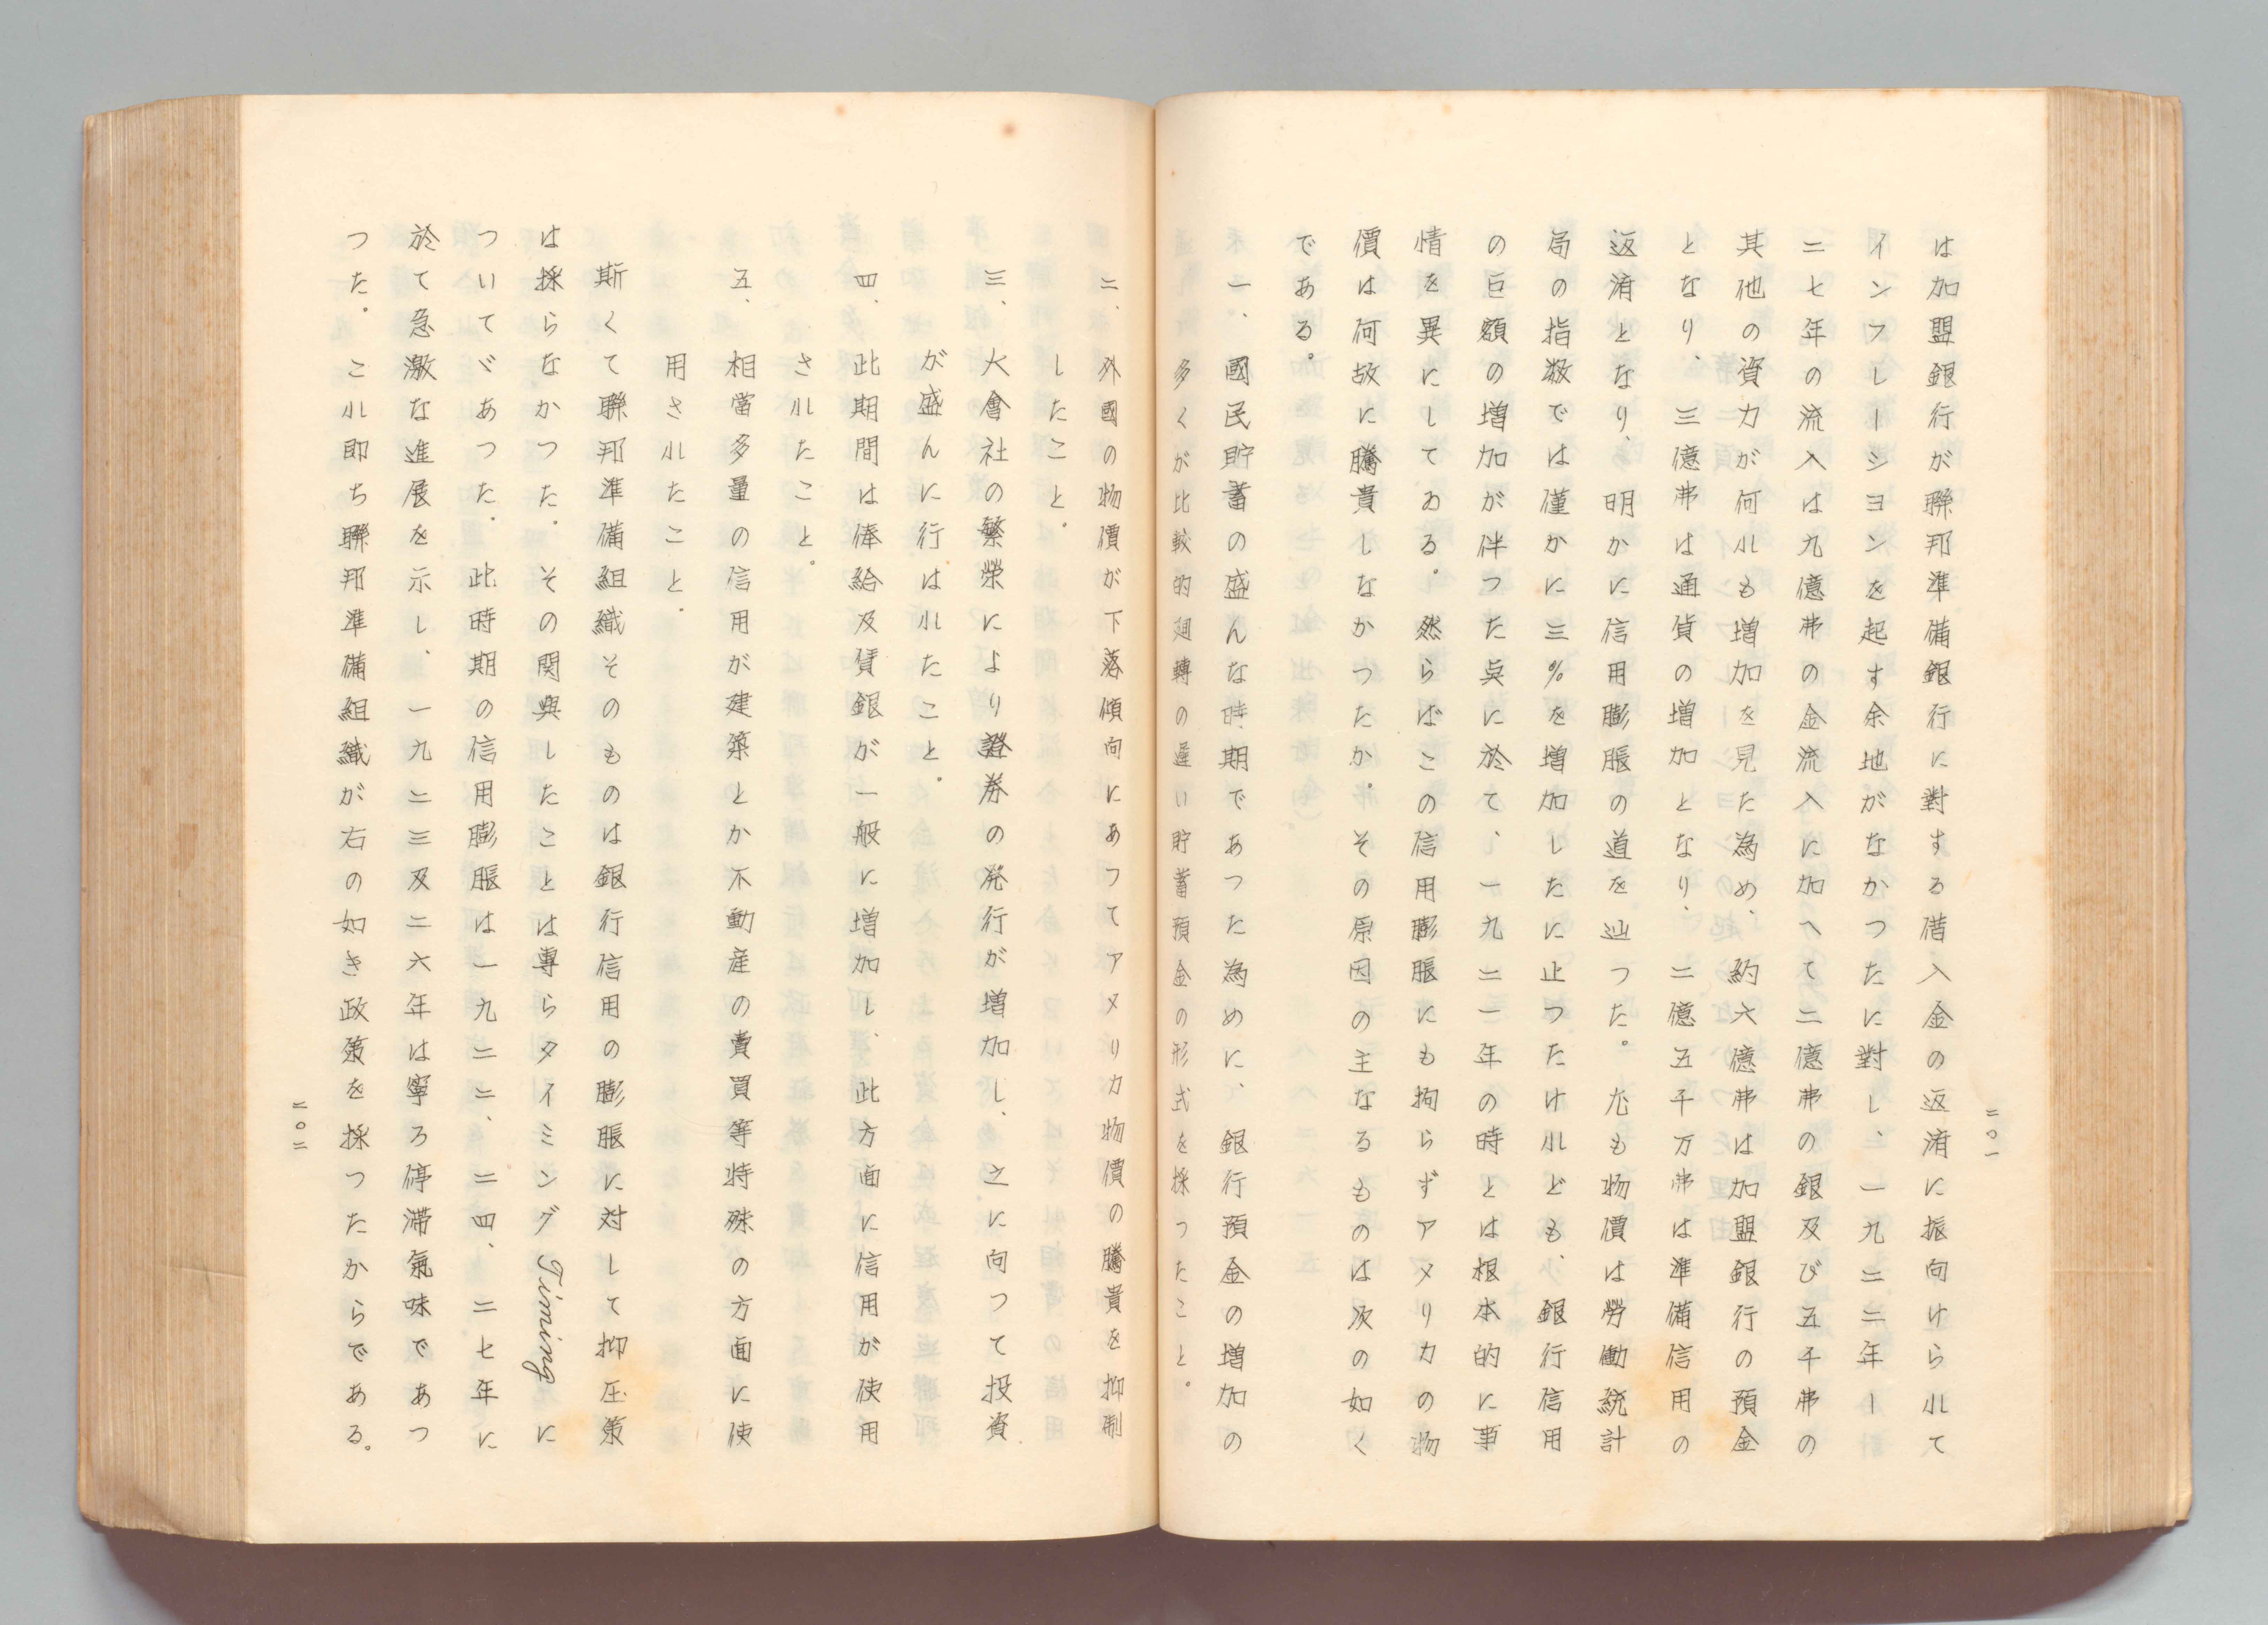 二〇一
は加盟銀行が聯邦準備銀行に對する借入金の返濟に振向けられて
インフレーシヨンを起す余地がなかつたに對し、一九二二年ー
二七年の流入は九億弗の金流入に加へて二億弗の銀及び五千弗の
其他の資力が何れも増加を見た為め、約六億弗は加盟銀行の預金
となり、三億弗は通貨の増加となり、二億五千万弗は準備信用の
返濟となり、明かに信用膨脹の道を辿つた。尤も物價は勞働統計
局の指数では僅かに三％を増加したに止つたけれども、銀行信用
の巨額の増加が伴つた点に於て、一九二一年の時とは根本的に事
情を異にしてゐる。然らばこの信用膨脹にも拘らずアメリカの物
價は何故に騰貴しなかつたか。その原因の主なるものは次の如く
である。
一、國民貯蓄の盛んな時期であつた為めに、銀行預金の増加の
多くが比較的廻轉の遅い貯蓄預金の形式を採つたこと。
二、外國の物價が下落傾向にあつてアメリカ物價の騰貴を抑制
したこと。
三、大會社の繁榮により證券の発行が増加し、之に向つて投資
が盛んに行はれたこと。
四、此期間は俸給及賃銀が一般に増加し、此方面に信用が使用
されたこと。
五、相當多量の信用が建築とか不動産の賣買等特殊の方面に使
用されたこと。
斯くて聯邦準備組織そのものは銀行信用の膨脹に対して抑圧策
は採らなかつた。その関與したことは專らタイミング Timing に
ついてゞあつた。此時期の信用膨脹は一九二二、二四、二七年に
於て急激な進展を示し、一九二三及二六年は寧ろ停滞氣味であつ
つた。これ即ち聯邦準備組織が右の如き政策を採つたからである。
二〇二